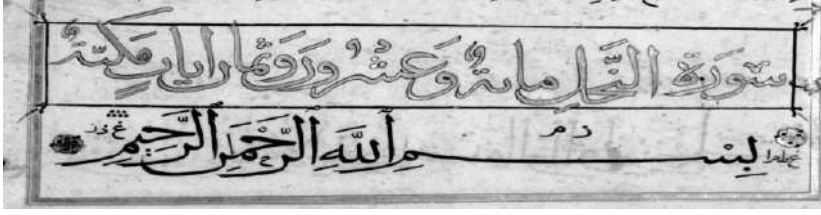 سورة النحل مائة وعشرون وثمان ايات مكية
بِسْمِ اللَّهِ الرَّحْمَنِ الرَّحِيمِ